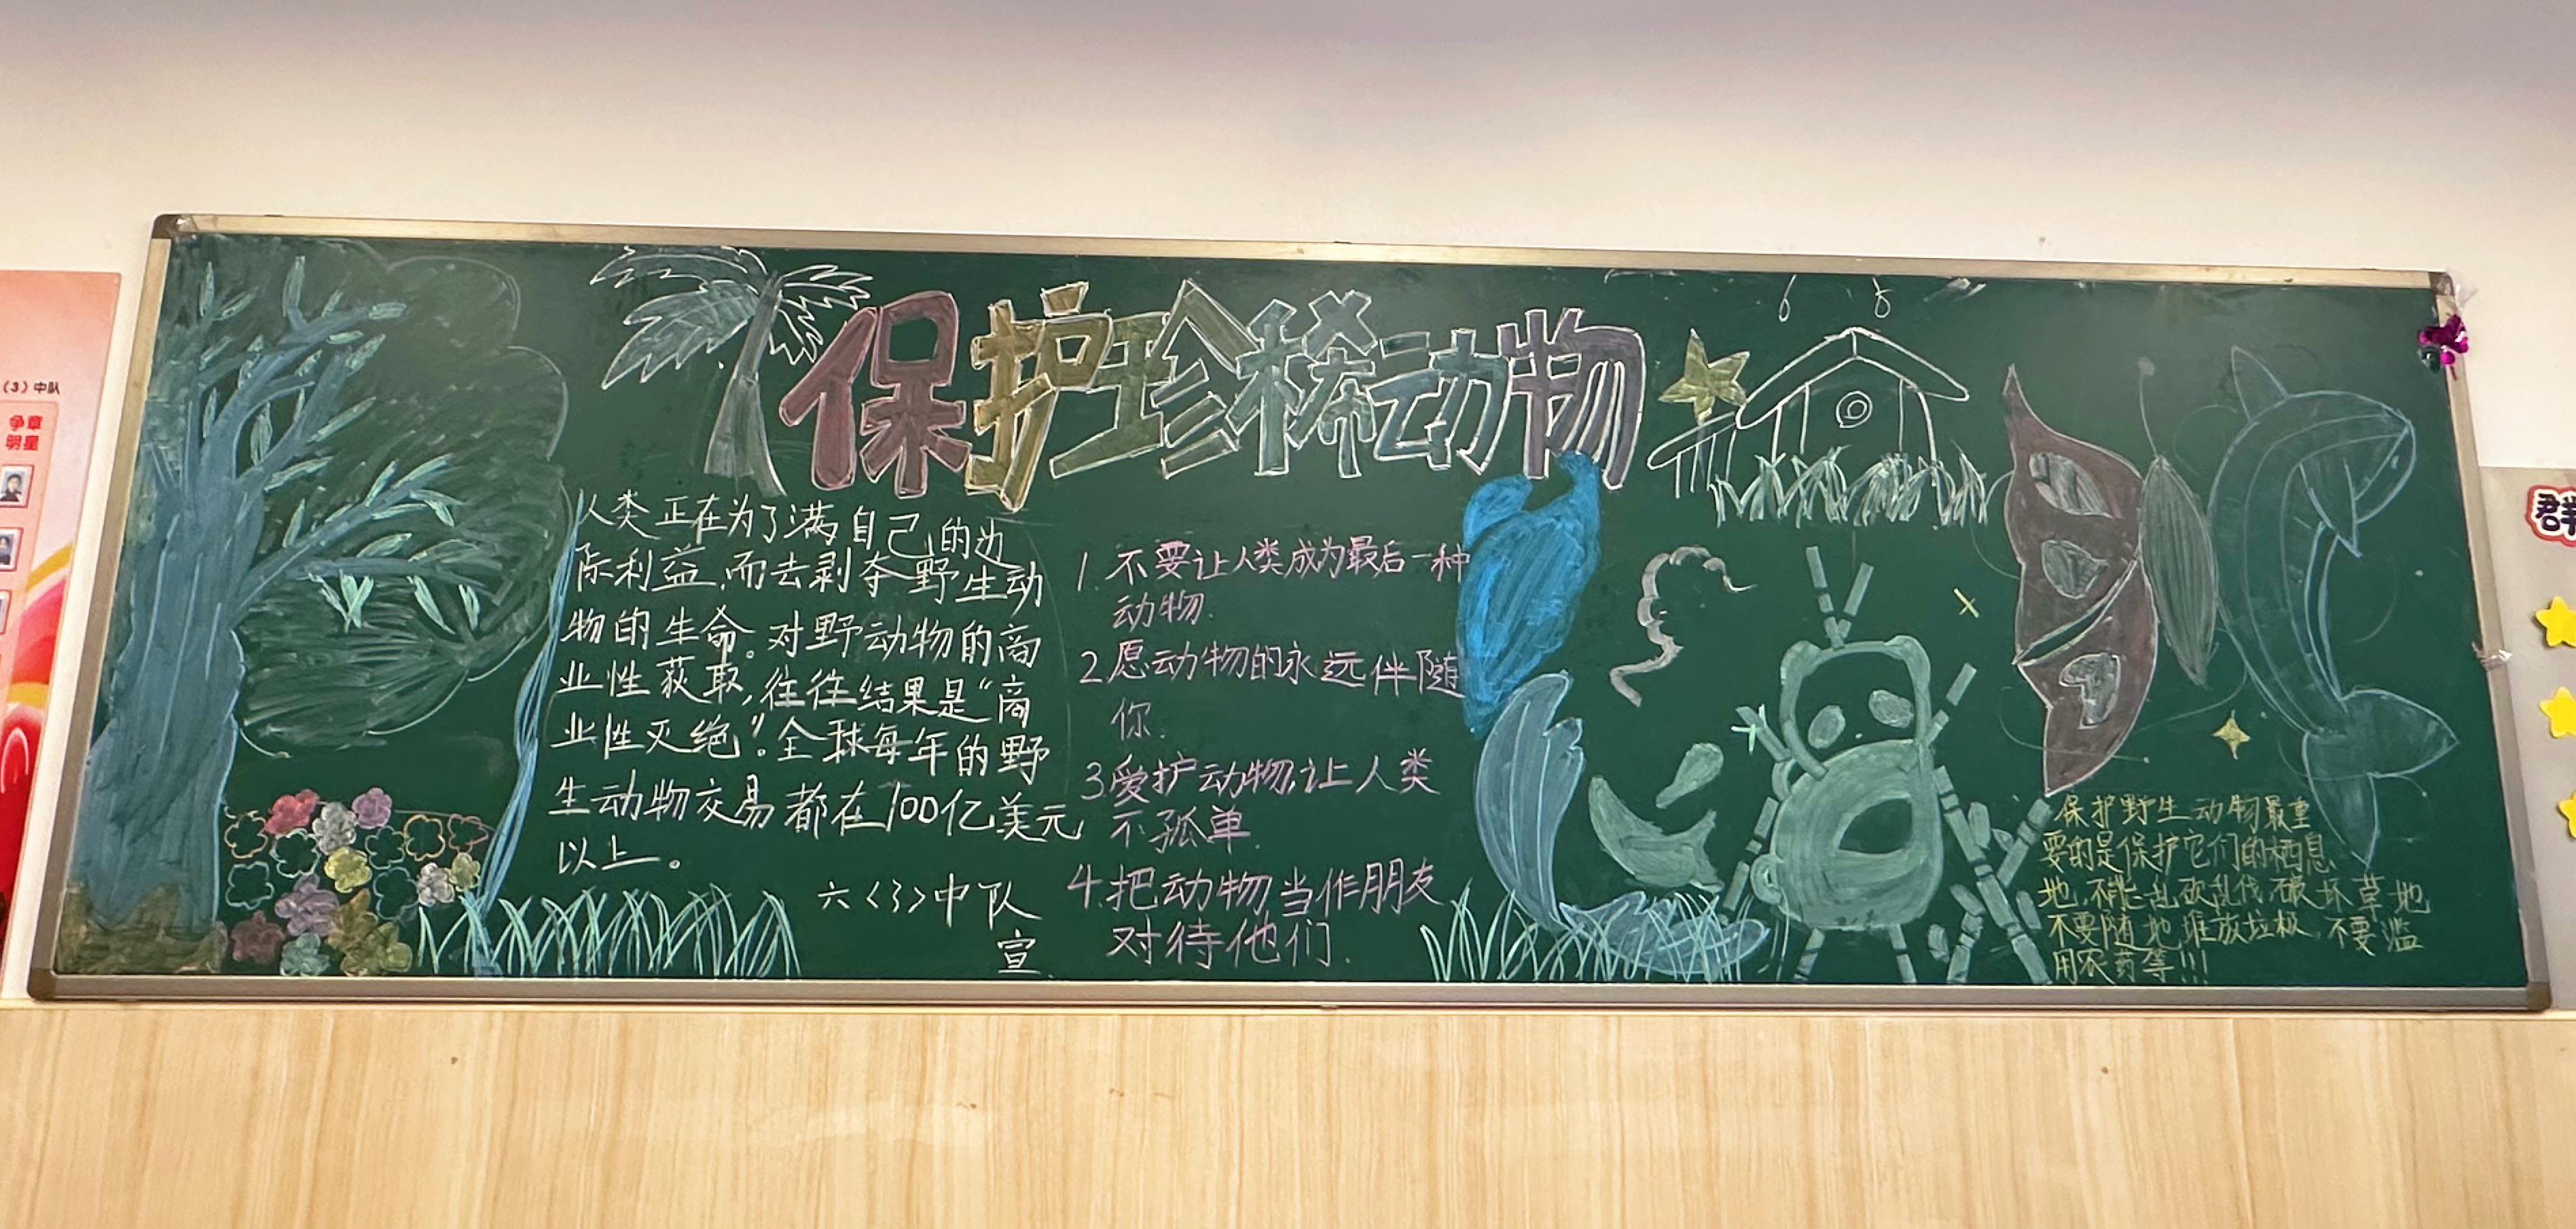 保护珍稀动物
人类正在为了满自己的边
际利益,而去剥夺野生动
物的生命。对野动物的商
业性获取,往往结果是“商
业性灭绝”。全球每年的野
生动物交易都在100亿美元
以上。
六<3>中队
宣.
1.不要让人类成为最后一种
动物.
2.愿动物的永远伴随
你.
3.爱护动物,让人类
不孤单.
4.把动物当作朋友
对待他们.
保护野生动物最重
要的是保护它们的栖息
地,不能乱砍乱伐,破坏草地
不要随地堆放垃圾,不要滥
用农药等!!!
(3)中队
争章
明星
群